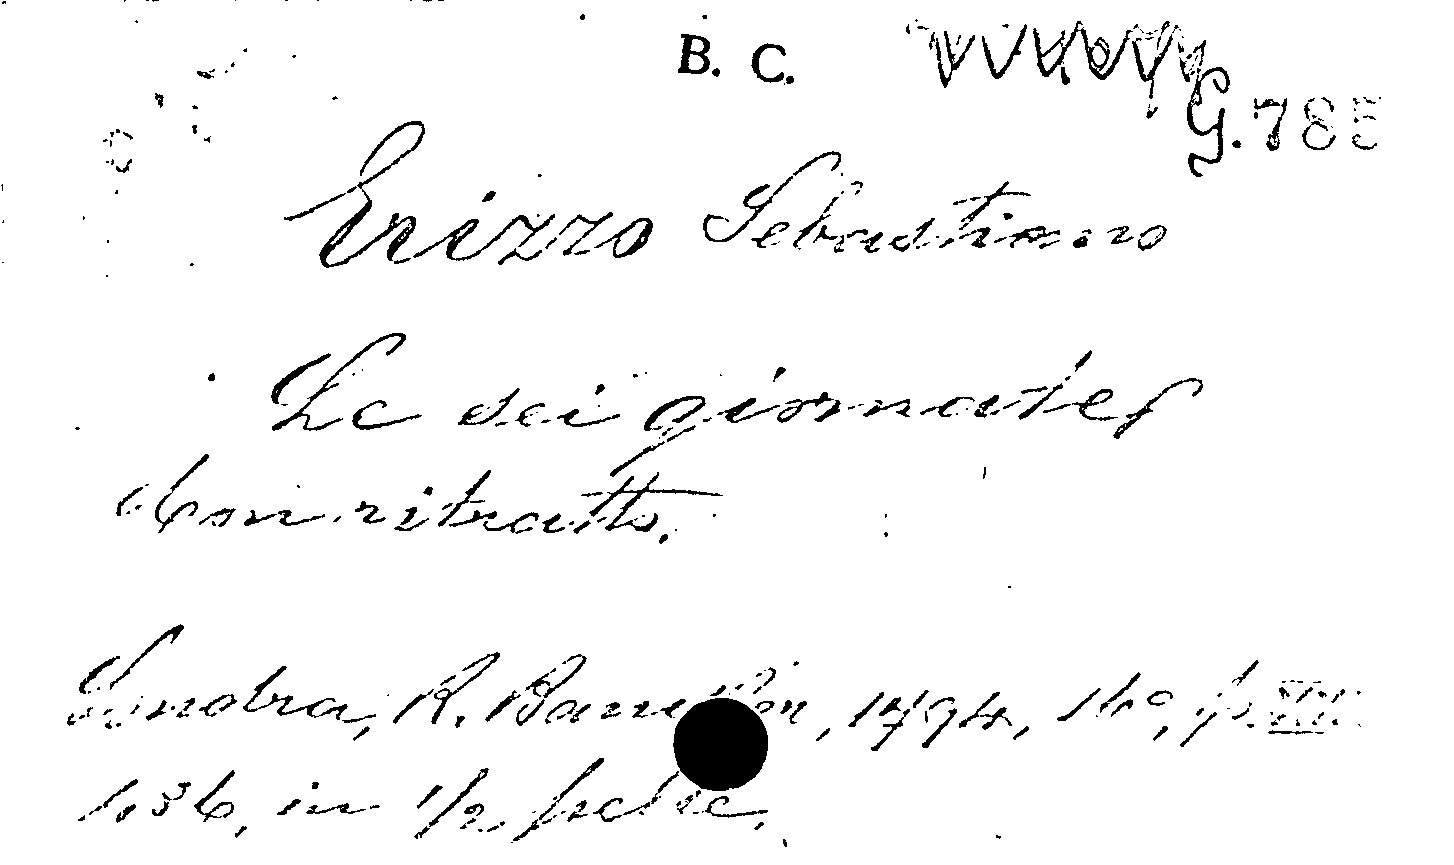 B. C.
G. 785
Erizzo Sebastiano
Le sei giornate
Con ritratto.
Londra, R. 1794, 16°, p. XIII.
436, in 1/2 pelle.